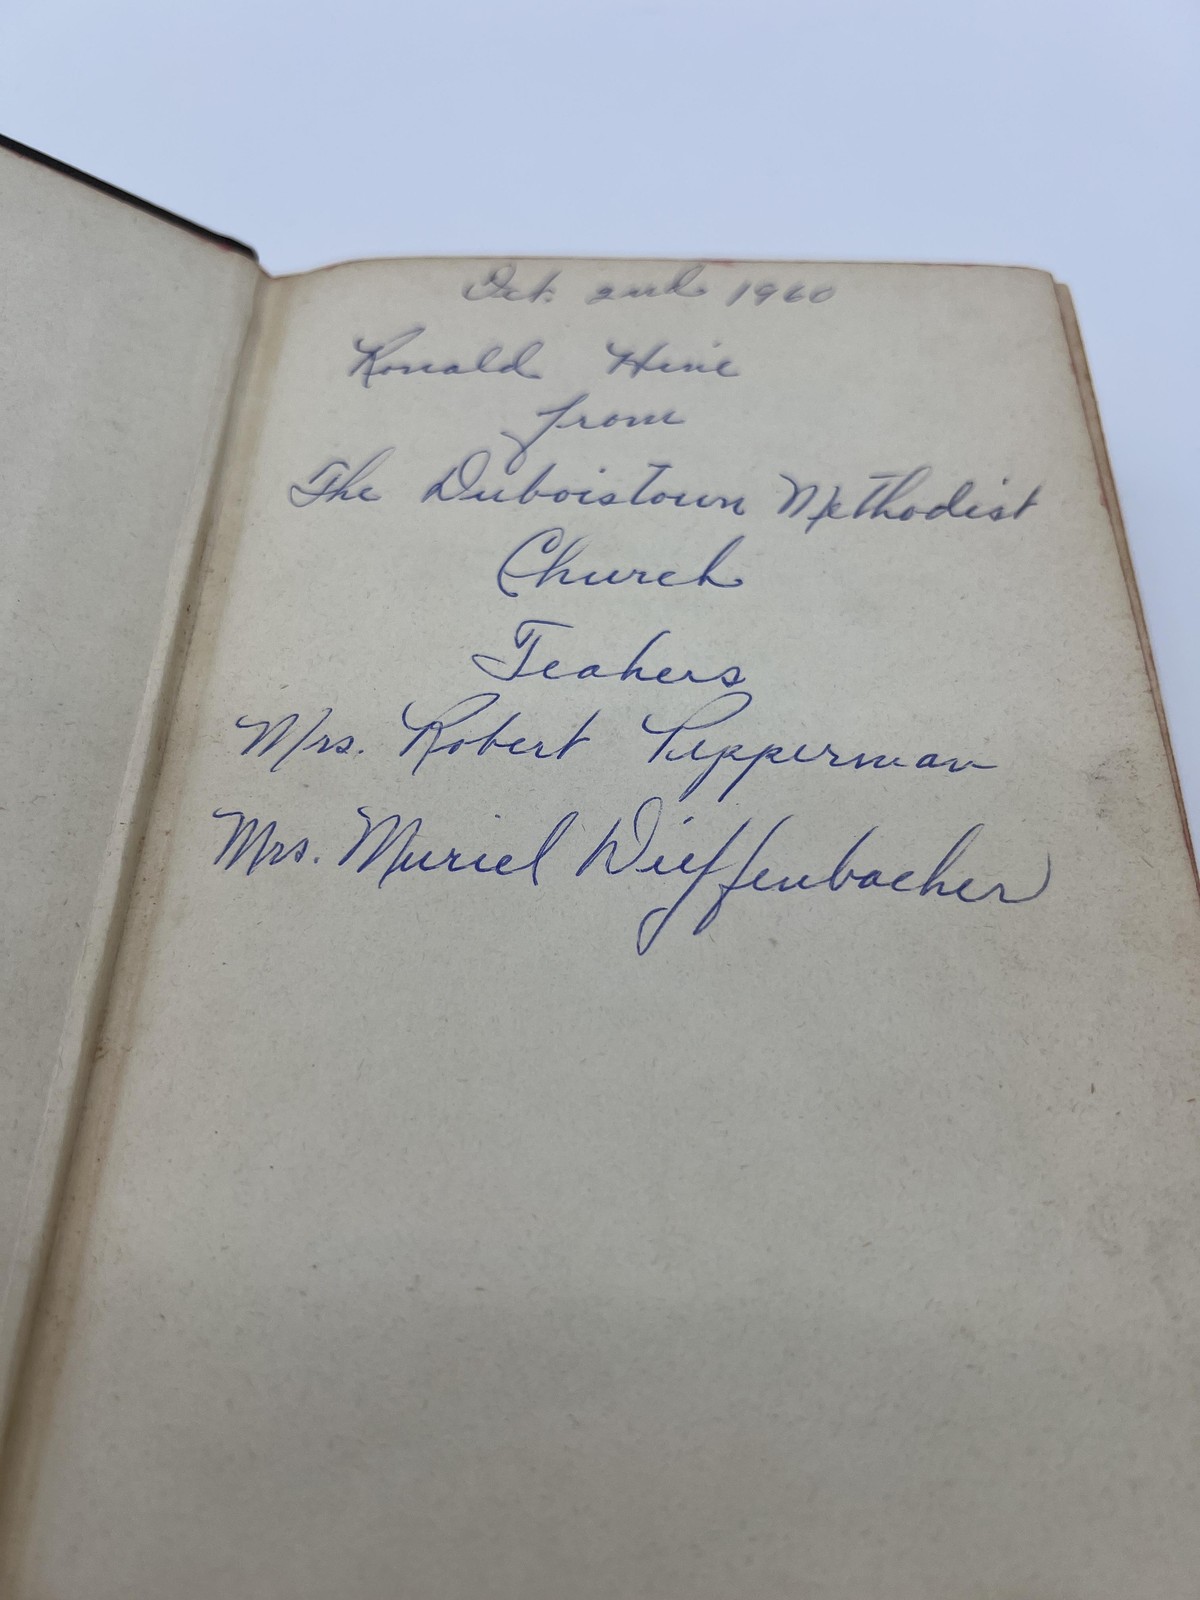 Oct. 2nd 1960
Ronald Hine
from
The Duboistown Methodist
Church
Teahers
Mrs. Robert Pepperman
Mrs. Muriel Dieffenbacher